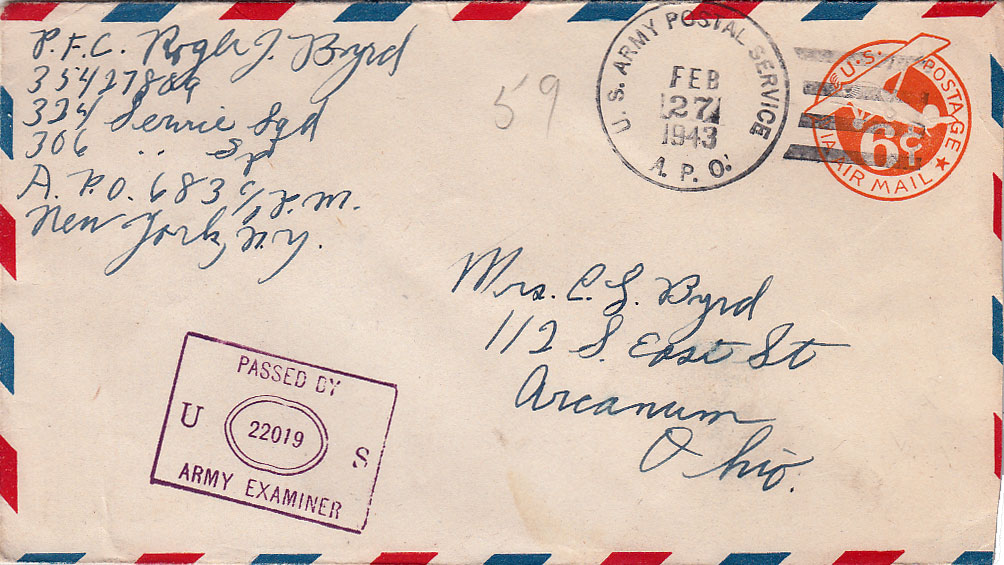 P.F.C. Roger J. Byrd
35427829
324 Servic Sqd
306 " Gp
A.P.O. 683 c/o P.M.
New York, N.Y.
59
U. S. ARMY POSTAL SERVICE
FEB
27
1943
A. P. O.
U.S. POSTAGE
6¢
VIA AIR MAIL
Mrs. C. L. Byrd
112 S. East St
Arcanum
Ohio.
PASSED BY
U 22019 S
ARMY EXAMINER